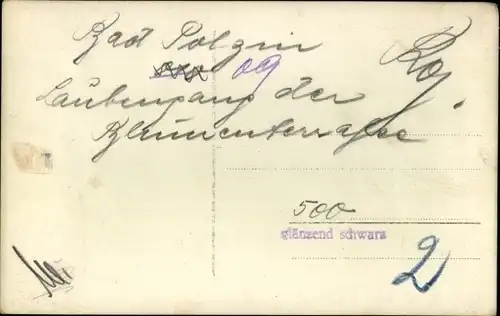 Bad Polzin
09
Laubengang der
Blumenterrasse
500
glänzend schwarz
2